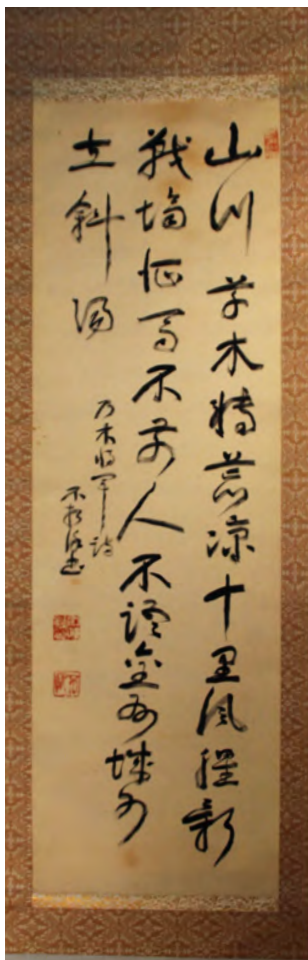 山川草木轉荒涼十里風腥新
戰場征馬不前人不語金州城外
立斜陽
乃木将軍詩